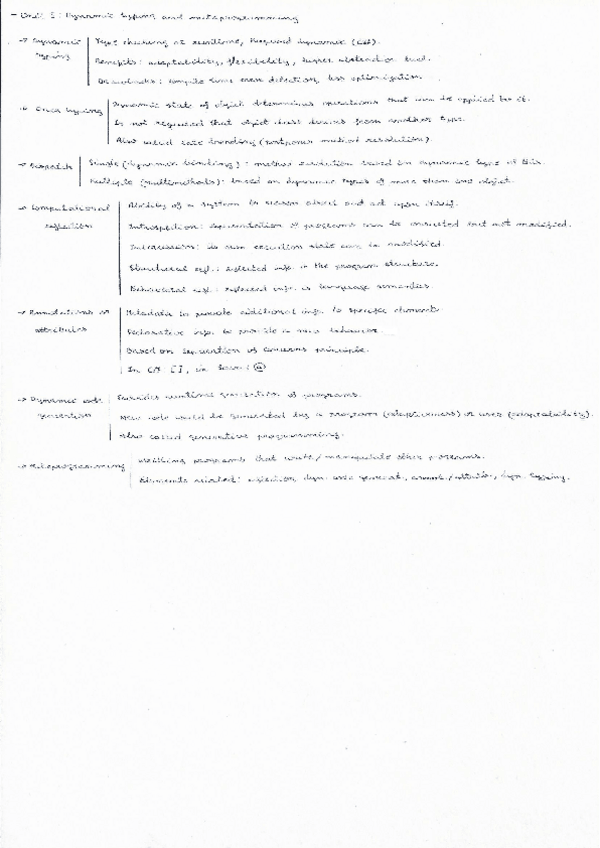 - Unit 5: Dynamic typing and metaprogramming
→ Dynamic typing | Type checking at runtime, keyword dynamic (C#).
Benefits: adaptability, flexibility, higher abstraction level.
Drawbacks: compile time error detection, less optimization.
→ Duck typing | Dynamic state of object determines operations that can be applied by it.
Is not required that object class derives from another type.
Also called late bounding (postpones method resolution).
→ Dispatch | Single (dynamic binding): method resolution based on dynamic type of this.
Multiple (multimethods): based on dynamic types of more than one object.
→ Computational reflection | Ability of a system to reason about and act upon itself.
Introspection: representation of programs can be consulted but not modified.
Intercession: its own execution state can be modified.
Structural refl.: reflected info. is the program structure.
Behavioral refl.: reflected info. is language semantics.
→ Annotations or attributes | Metadata to provide additional info. to specific elements.
Declarative info. to provide a new behavior.
Based on separation of concerns principle.
In C# [], in Java: @
→ Dynamic code generation | Provides runtime generation of programs.
New code could be generated by a program (adaptiveness) or user (adaptability).
Also called generative programming.
→ Metaprogramming | Writing programs that write/manipulate other programs.
Elements related: reflection, dyn. code generat., annot./attribs, dyn. typing.